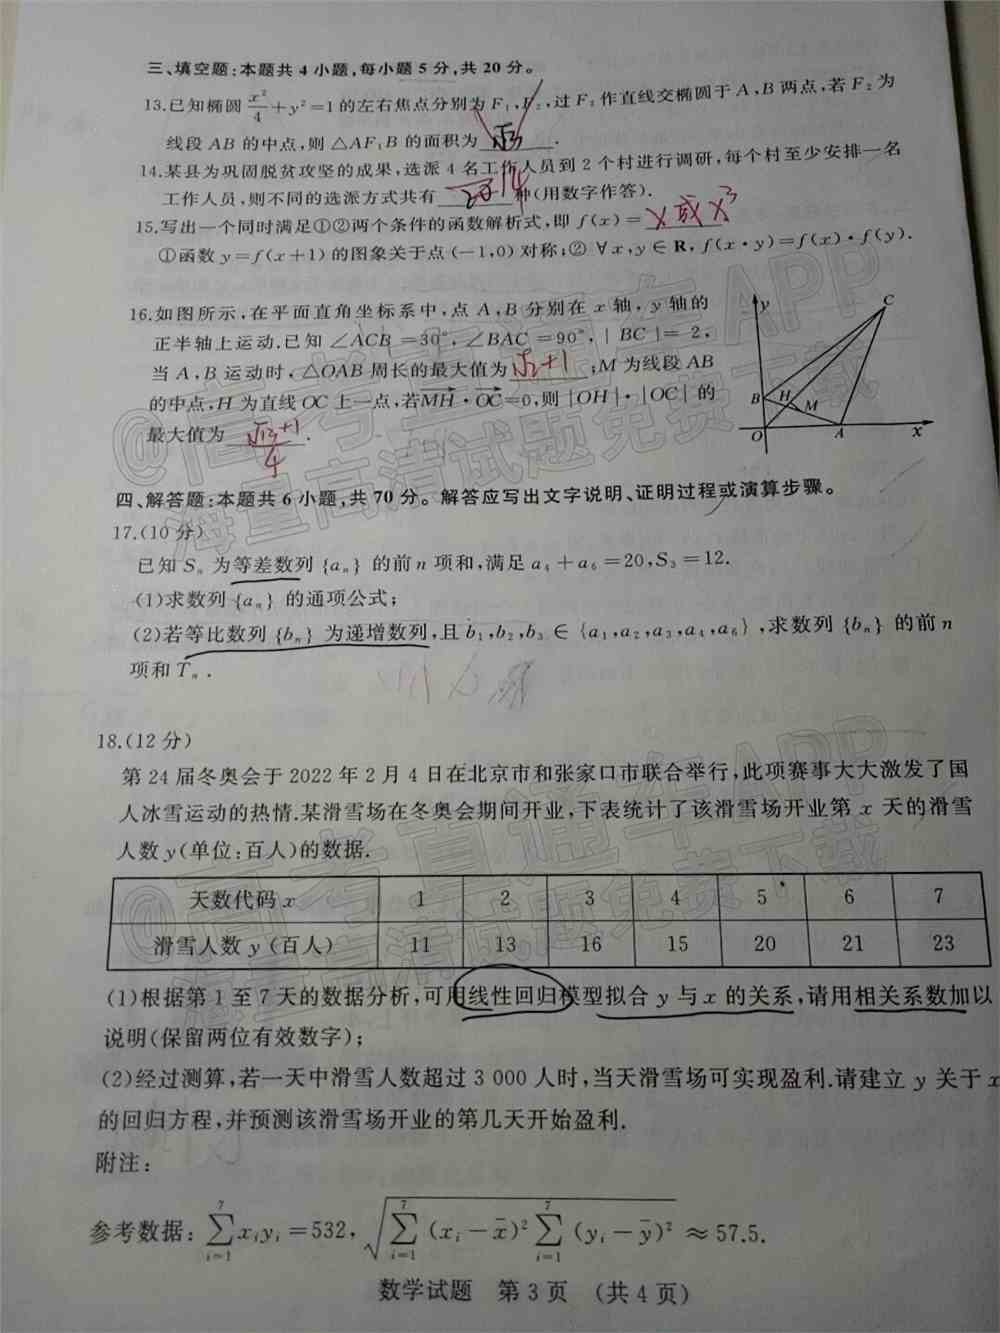 三、填空题:本题共 4 小题,每小题 5 分,共 20 分。
13.已知椭圆 x²/4+y²=1 的左右焦点分别为 F₁,F₂,过 F₂ 作直线交椭圆于 A,B 两点,若 F₂ 为
线段 AB 的中点,则 △AF₁B 的面积为 √3 .
14.某县为巩固脱贫攻坚的成果,选派 4 名工作人员到 2 个村进行调研,每个村至少安排一名
工作人员,则不同的选派方式共有 14 种(用数字作答).
15.写出一个同时满足①②两个条件的函数解析式,即 f(x)= x 或 x³
①函数 y=f(x+1) 的图象关于点 (-1,0) 对称;② ∀x,y∈R,f(x·y)=f(x)·f(y).
16.如图所示,在平面直角坐标系中,点 A,B 分别在 x 轴,y 轴的
正半轴上运动.已知 ∠ACB=30°,∠BAC=90°,|BC|=2,
当 A,B 运动时,△OAB 周长的最大值为 √2+1 ;M 为线段 AB
的中点,H 为直线 OC 上一点,若MH·OC=0,则|OH|·|OC|的
最大值为 (√13+1)/4 .
y
C
B
H
M
O
A
x
四、解答题:本题共 6 小题,共 70 分。解答应写出文字说明、证明过程或演算步骤。
17.(10 分)
已知 Sₙ 为等差数列 {aₙ} 的前 n 项和,满足 a₄+a₆=20,S₃=12.
(1)求数列 {aₙ} 的通项公式;
(2)若等比数列 {bₙ} 为递增数列,且 b₁,b₂,b₃∈{a₁,a₂,a₃,a₄,a₆},求数列 {bₙ} 的前 n
项和 Tₙ.
18.(12 分)
第 24 届冬奥会于 2022 年 2 月 4 日在北京市和张家口市联合举行,此项赛事大大激发了国
人冰雪运动的热情.某滑雪场在冬奥会期间开业,下表统计了该滑雪场开业第 x 天的滑雪
人数 y(单位:百人)的数据.
天数代码 x 1 2 3 4 5 6 7
滑雪人数 y(百人) 11 13 16 15 20 21 23
(1)根据第 1 至 7 天的数据分析,可用线性回归模型拟合 y 与 x 的关系,请用相关系数加以
说明(保留两位有效数字);
(2)经过测算,若一天中滑雪人数超过 3 000 人时,当天滑雪场可实现盈利.请建立 y 关于 x
的回归方程,并预测该滑雪场开业的第几天开始盈利.
附注:
参考数据:∑(i=1→7) xᵢyᵢ=532,√(∑(i=1→7)(xᵢ-x̄)²∑(i=1→7)(yᵢ-ȳ)²)≈57.5.
数学试题 第 3 页 (共 4 页)
@高考直通车APP
海量高清试题免费下载
@高考直通车APP
海量高清试题免费下载